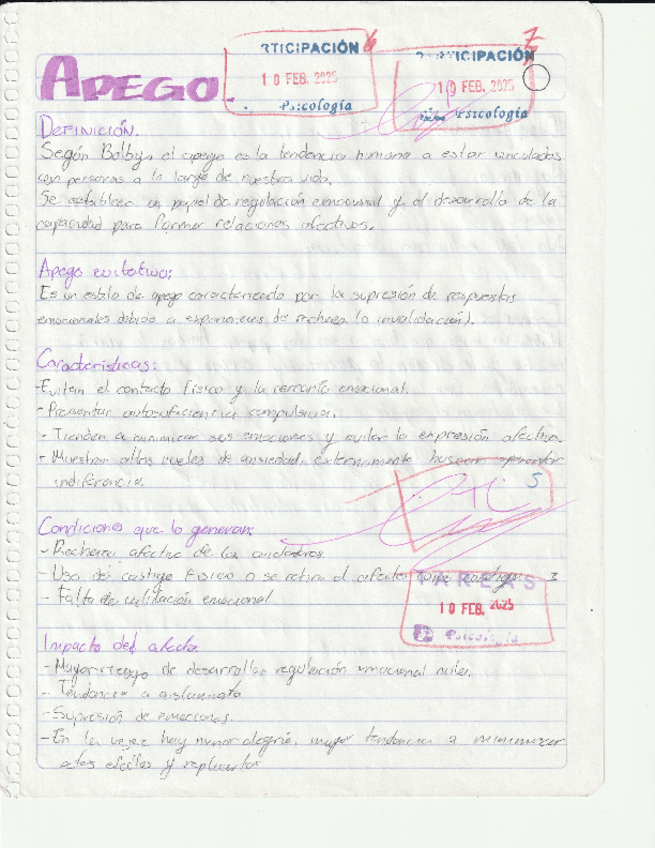 PARTICIPACIÓN 6
10 FEB. 2025
Psicología
7
PARTICIPACIÓN
10 FEB. 2025
Psicología
APEGO
DEFINICIÓN.
Según Bolby, el apego es la tendencia humana a estar vinculados
con personas a lo largo de nuestra vida.
Se establece un papel de regulación emocional y el desarrollo de la
capacidad para formar relaciones afectivas.
Apego evitativo:
Es un estilo de apego caracterizado por la supresión de respuestas
emocionales debido a experiencias de rechazo (o invalidación).
Características:
-Evitan el contacto físico y la cercanía emocional.
- Presentan autosuficiencia compulsiva.
- Tienden a minimizar sus emociones y evitar la expresión afectiva.
- Muestran altos niveles de ansiedad, externamente buscan aparentar
indiferencia.
5
Condiciones que lo generan:
- Rechazo afectivo de los cuidadores.
- Uso del castigo físico o se retira el afecto como castigo 3
- Falta de validación emocional
TAREAS
10 FEB. 2025
Psicología
Impacto del afecto
- Mayor riesgo de desarrollar regulación emocional
- Tendencia a
- Supresión de emociones.
- En la vejez hay menor alegría, mayor tendencia a minimizar
y